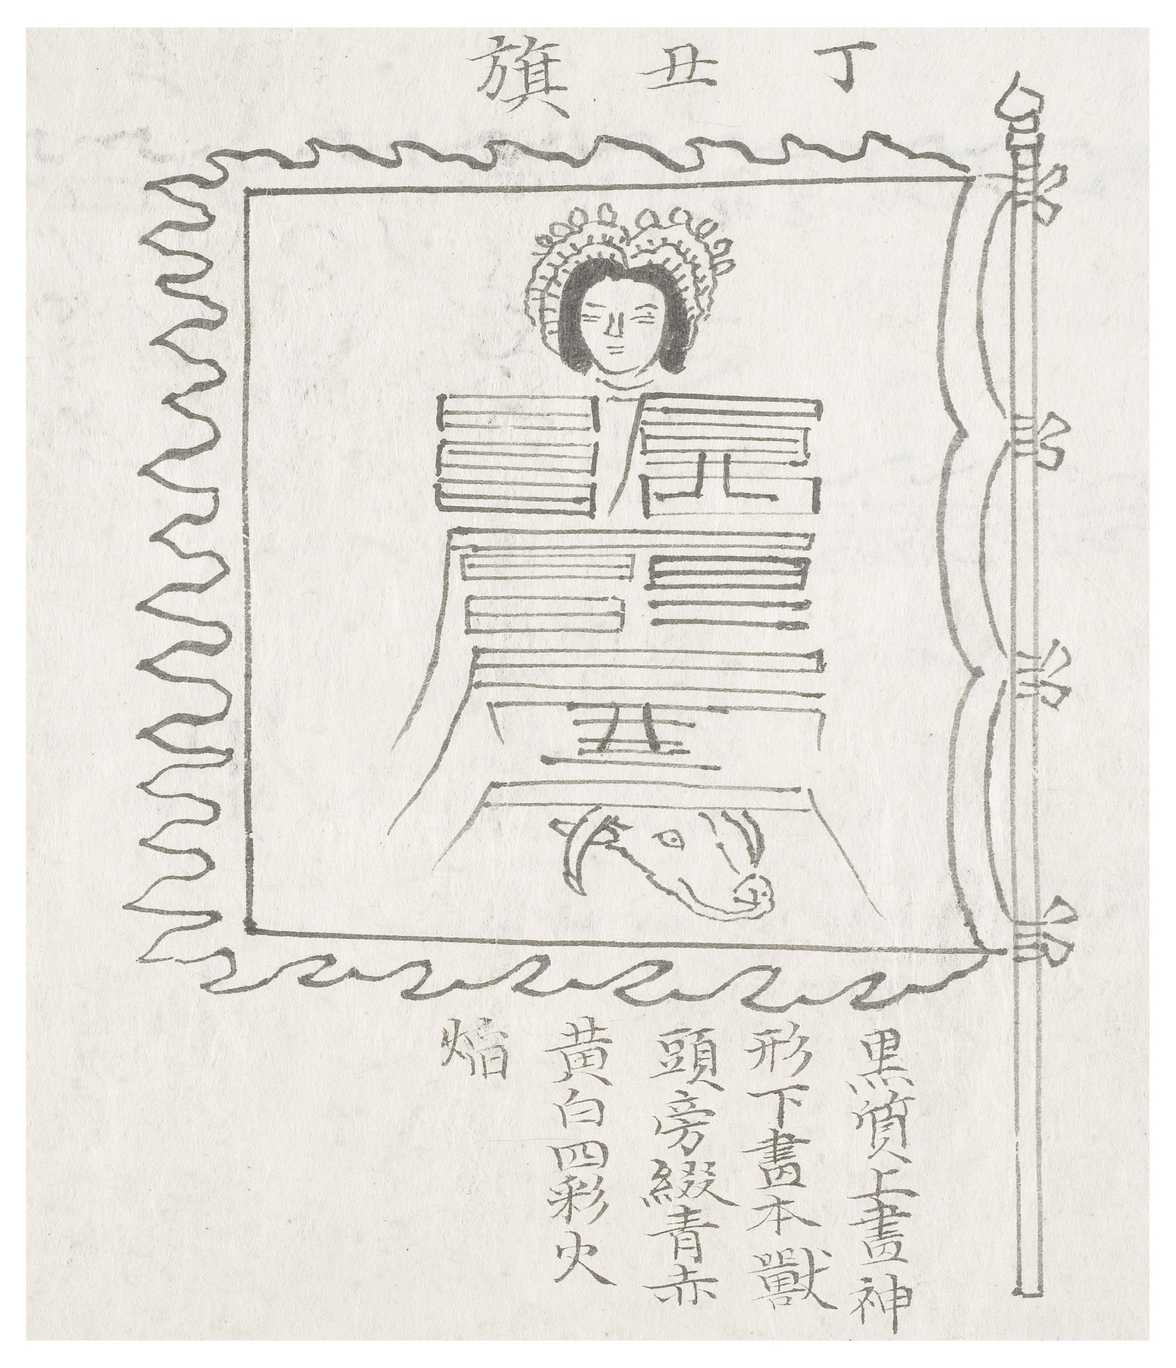 丁丑旗
黒質上畫神
形下畫本獸
頭旁綴青赤
黄白四彩火
焰